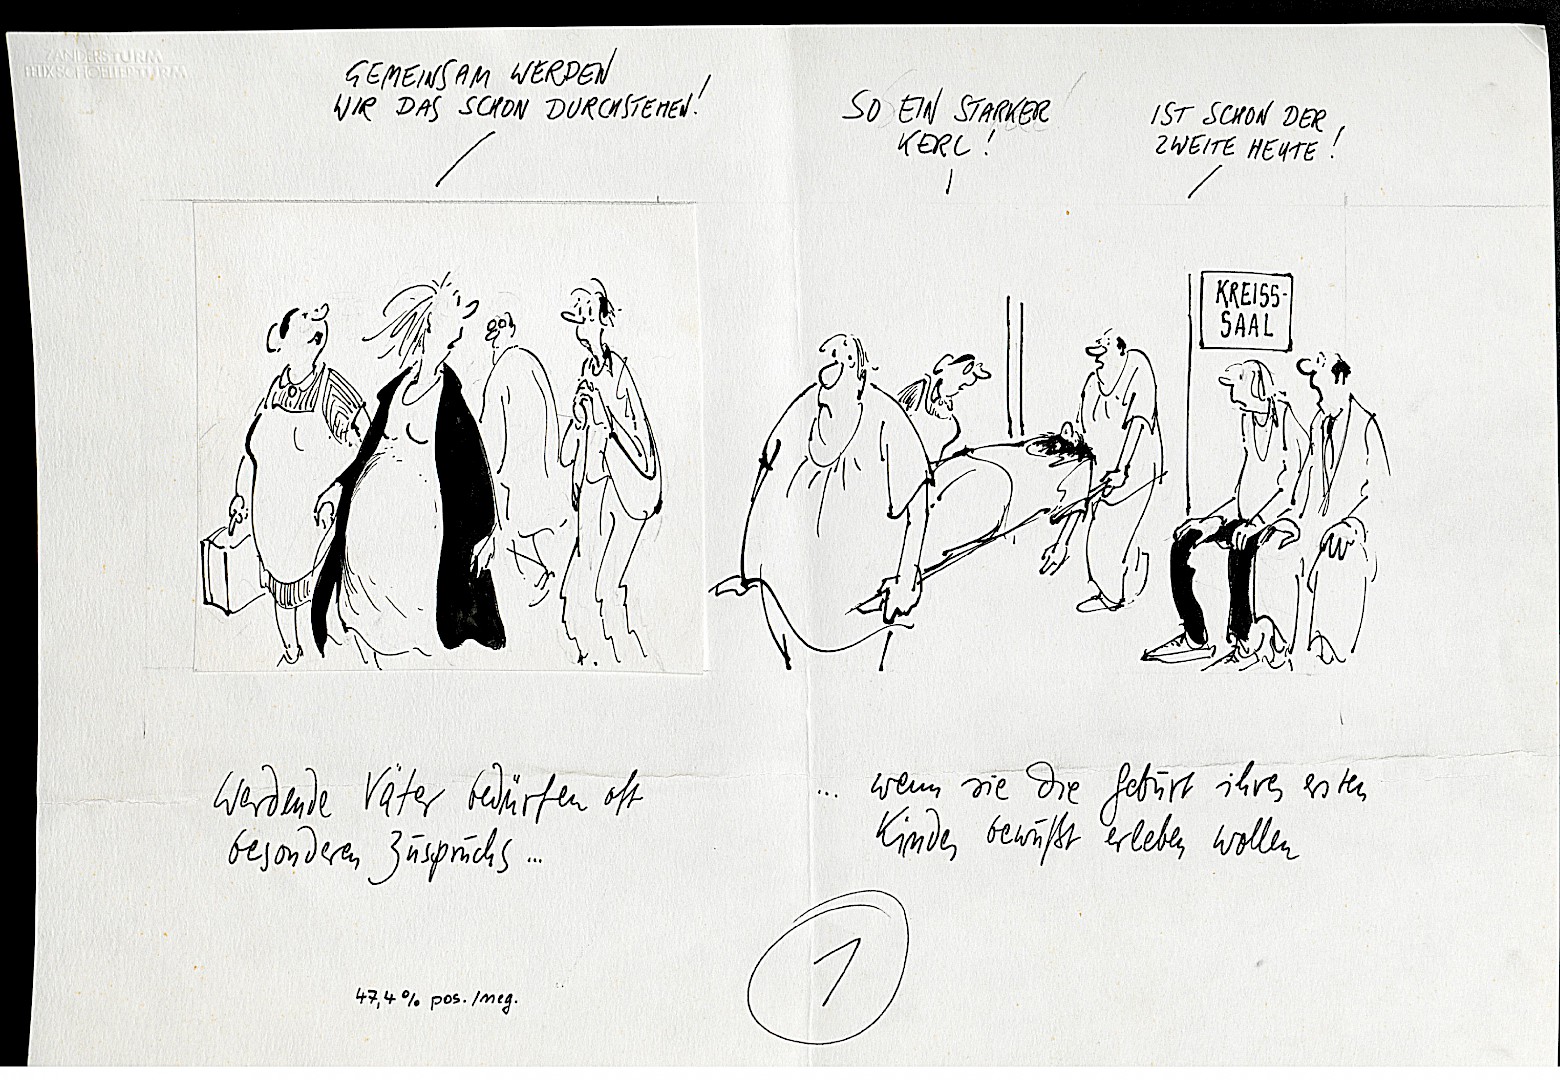 ZANDERSTURM
FELIXSCHOELLERTURM
GEMEINSAM WERDEN
WIR DAS SCHON DURCHSTEHEN!
SO EIN STARKER
KERL!
IST SCHON DER
ZWEITE HEUTE!
KREISS-
SAAL
Werdende Väter bedürfen oft
besonderen Zuspruchs...
... wenn sie die Geburt ihres ersten
Kindes bewußt erleben wollen
1
47,4% pos./neg.